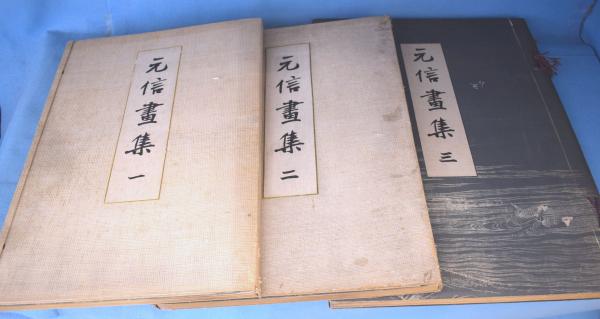 元信畫集 一
元信畫集 二
元信畫集 三